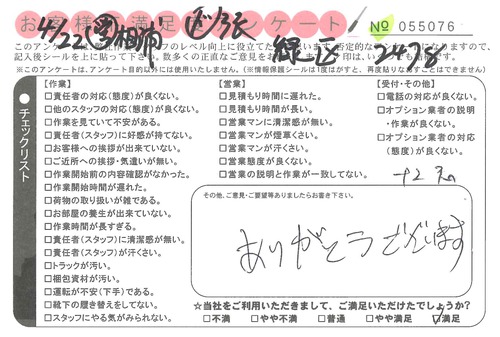 お客様不満足アンケート No 055076
4/22
緑区
このアンケートは、作業
記入後シールを上に貼って下さい。数多くの正直なご意見をお
※このアンケートは、アンケート目的以外には使用いたしません。(※情報保護シールは1度はがすと、再度貼りなおすことはできません)
チェックリスト
【作業】
□責任者の対応(態度)が良くない。
□他のスタッフの対応(態度)が良くない。
□作業を見ていて不安がある。
□責任者(スタッフ)に好感が持てない。
□お客様への挨拶が出来ていない。
□ご近所への挨拶・気遣いが無い。
□作業開始前の内容確認がなかった。
□作業開始時間が遅れた。
□荷物の取り扱いが雑である。
□お部屋の養生が出来ていない。
□作業時間が長すぎる。
□責任者(スタッフ)に清潔感が無い。
□責任者(スタッフ)が汗くさい。
□トラックが汚い。
□梱包資材が汚い。
□運転が不安(下手)である。
□靴下の履き替えをしてない。
□スタッフにやる気がみられない。
【営業】
□見積もり時間に遅れた。
□見積もり時間が長い。
□営業マンに清潔感が無い。
□営業マンが煙草くさい。
□営業マンが汗くさい。
□営業態度が良くない。
□営業の説明と作業が一致してない。
【受付・その他】
□電話の対応が良くない。
□オプション業者の説明
・作業が良くない。
□オプション業者の対応
(態度)が良くない。
その他、ご意見・ご要望等ありましたらお書き下さい。
ありがとうございます
☆当社をご利用いただきまして、ご満足いただけたでしょうか?
□不満 □やや不満 □普通 □やや満足 ☑満足